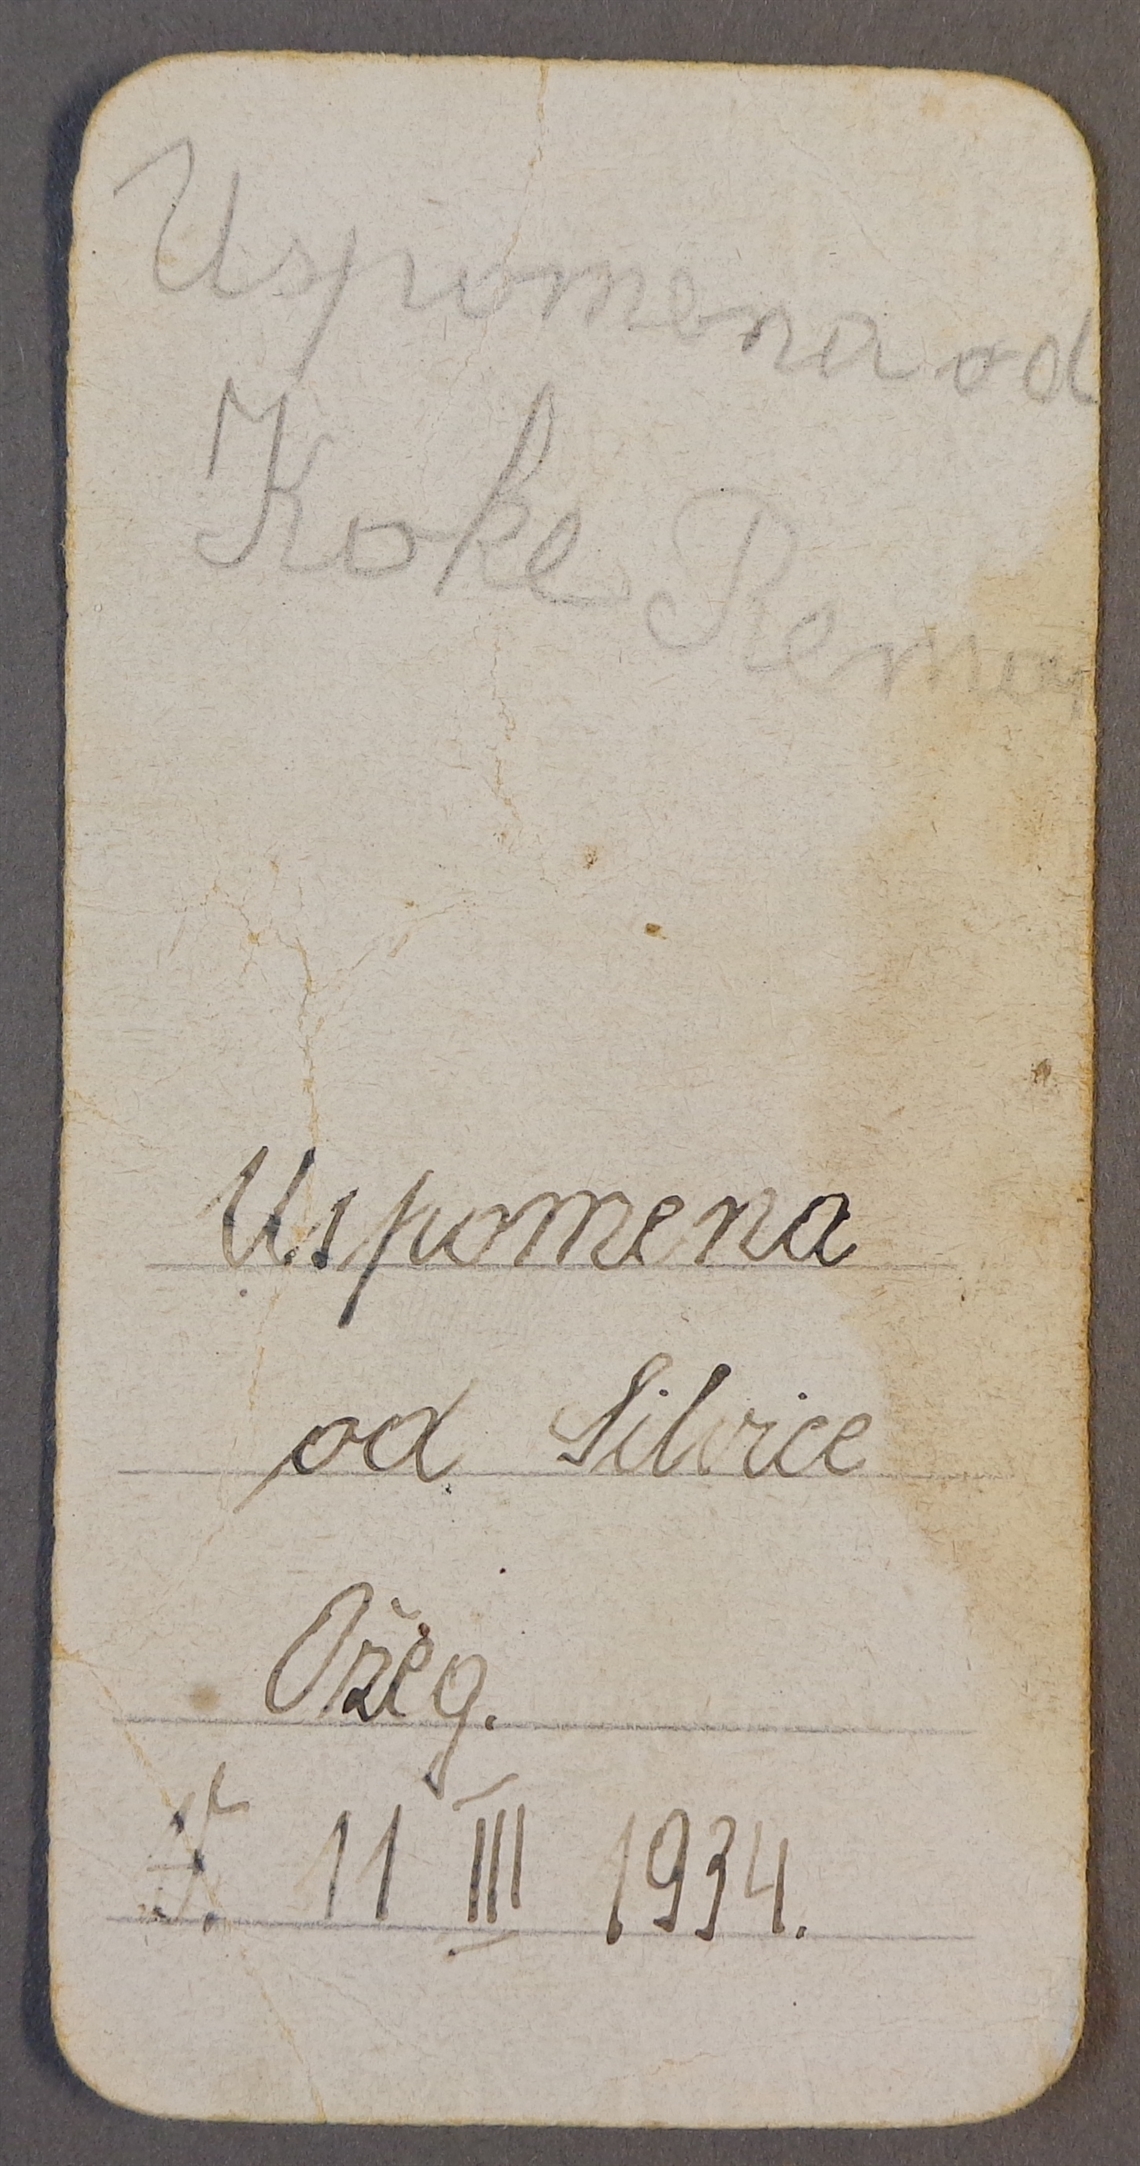 Uspomena od
Koke
Uspomena
od Silvice
Ožeg.
11 III 1934.